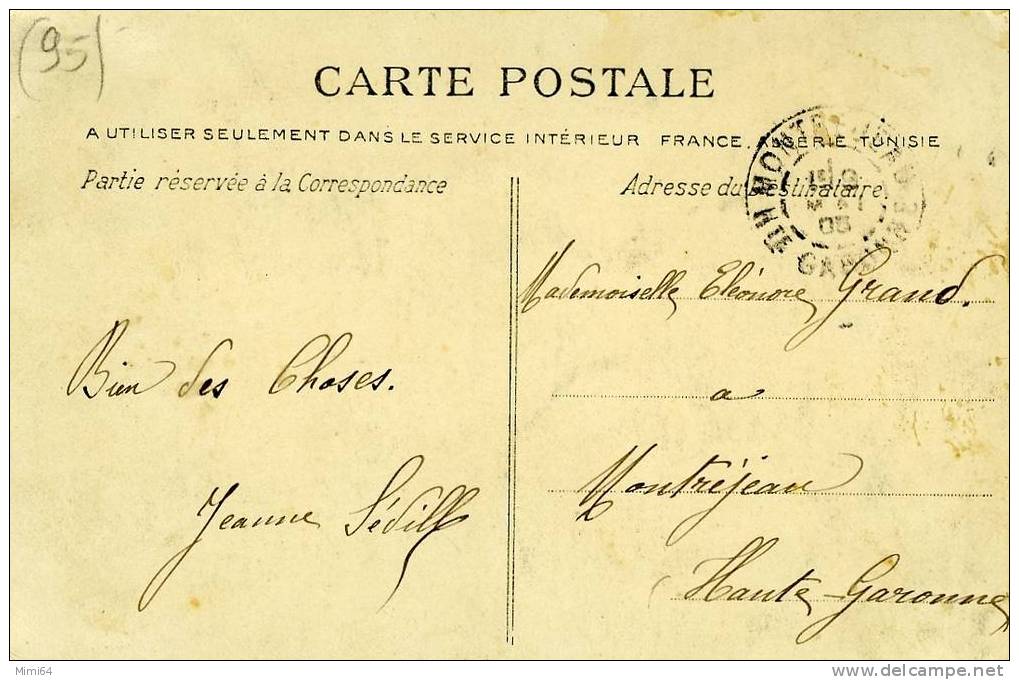 (95)
CARTE POSTALE
A UTILISER SEULEMENT DANS LE SERVICE INTÉRIEUR FRANCE, ALGÉRIE, TUNISIE
Partie réservée à la Correspondance
Adresse du Destinataire
Mademoiselle Eléonore Grand.
a
Montréjeau
Haute-Garonne
Bien des Choses.
Jeanne Sédill
Mimi64
www.delcampe.net